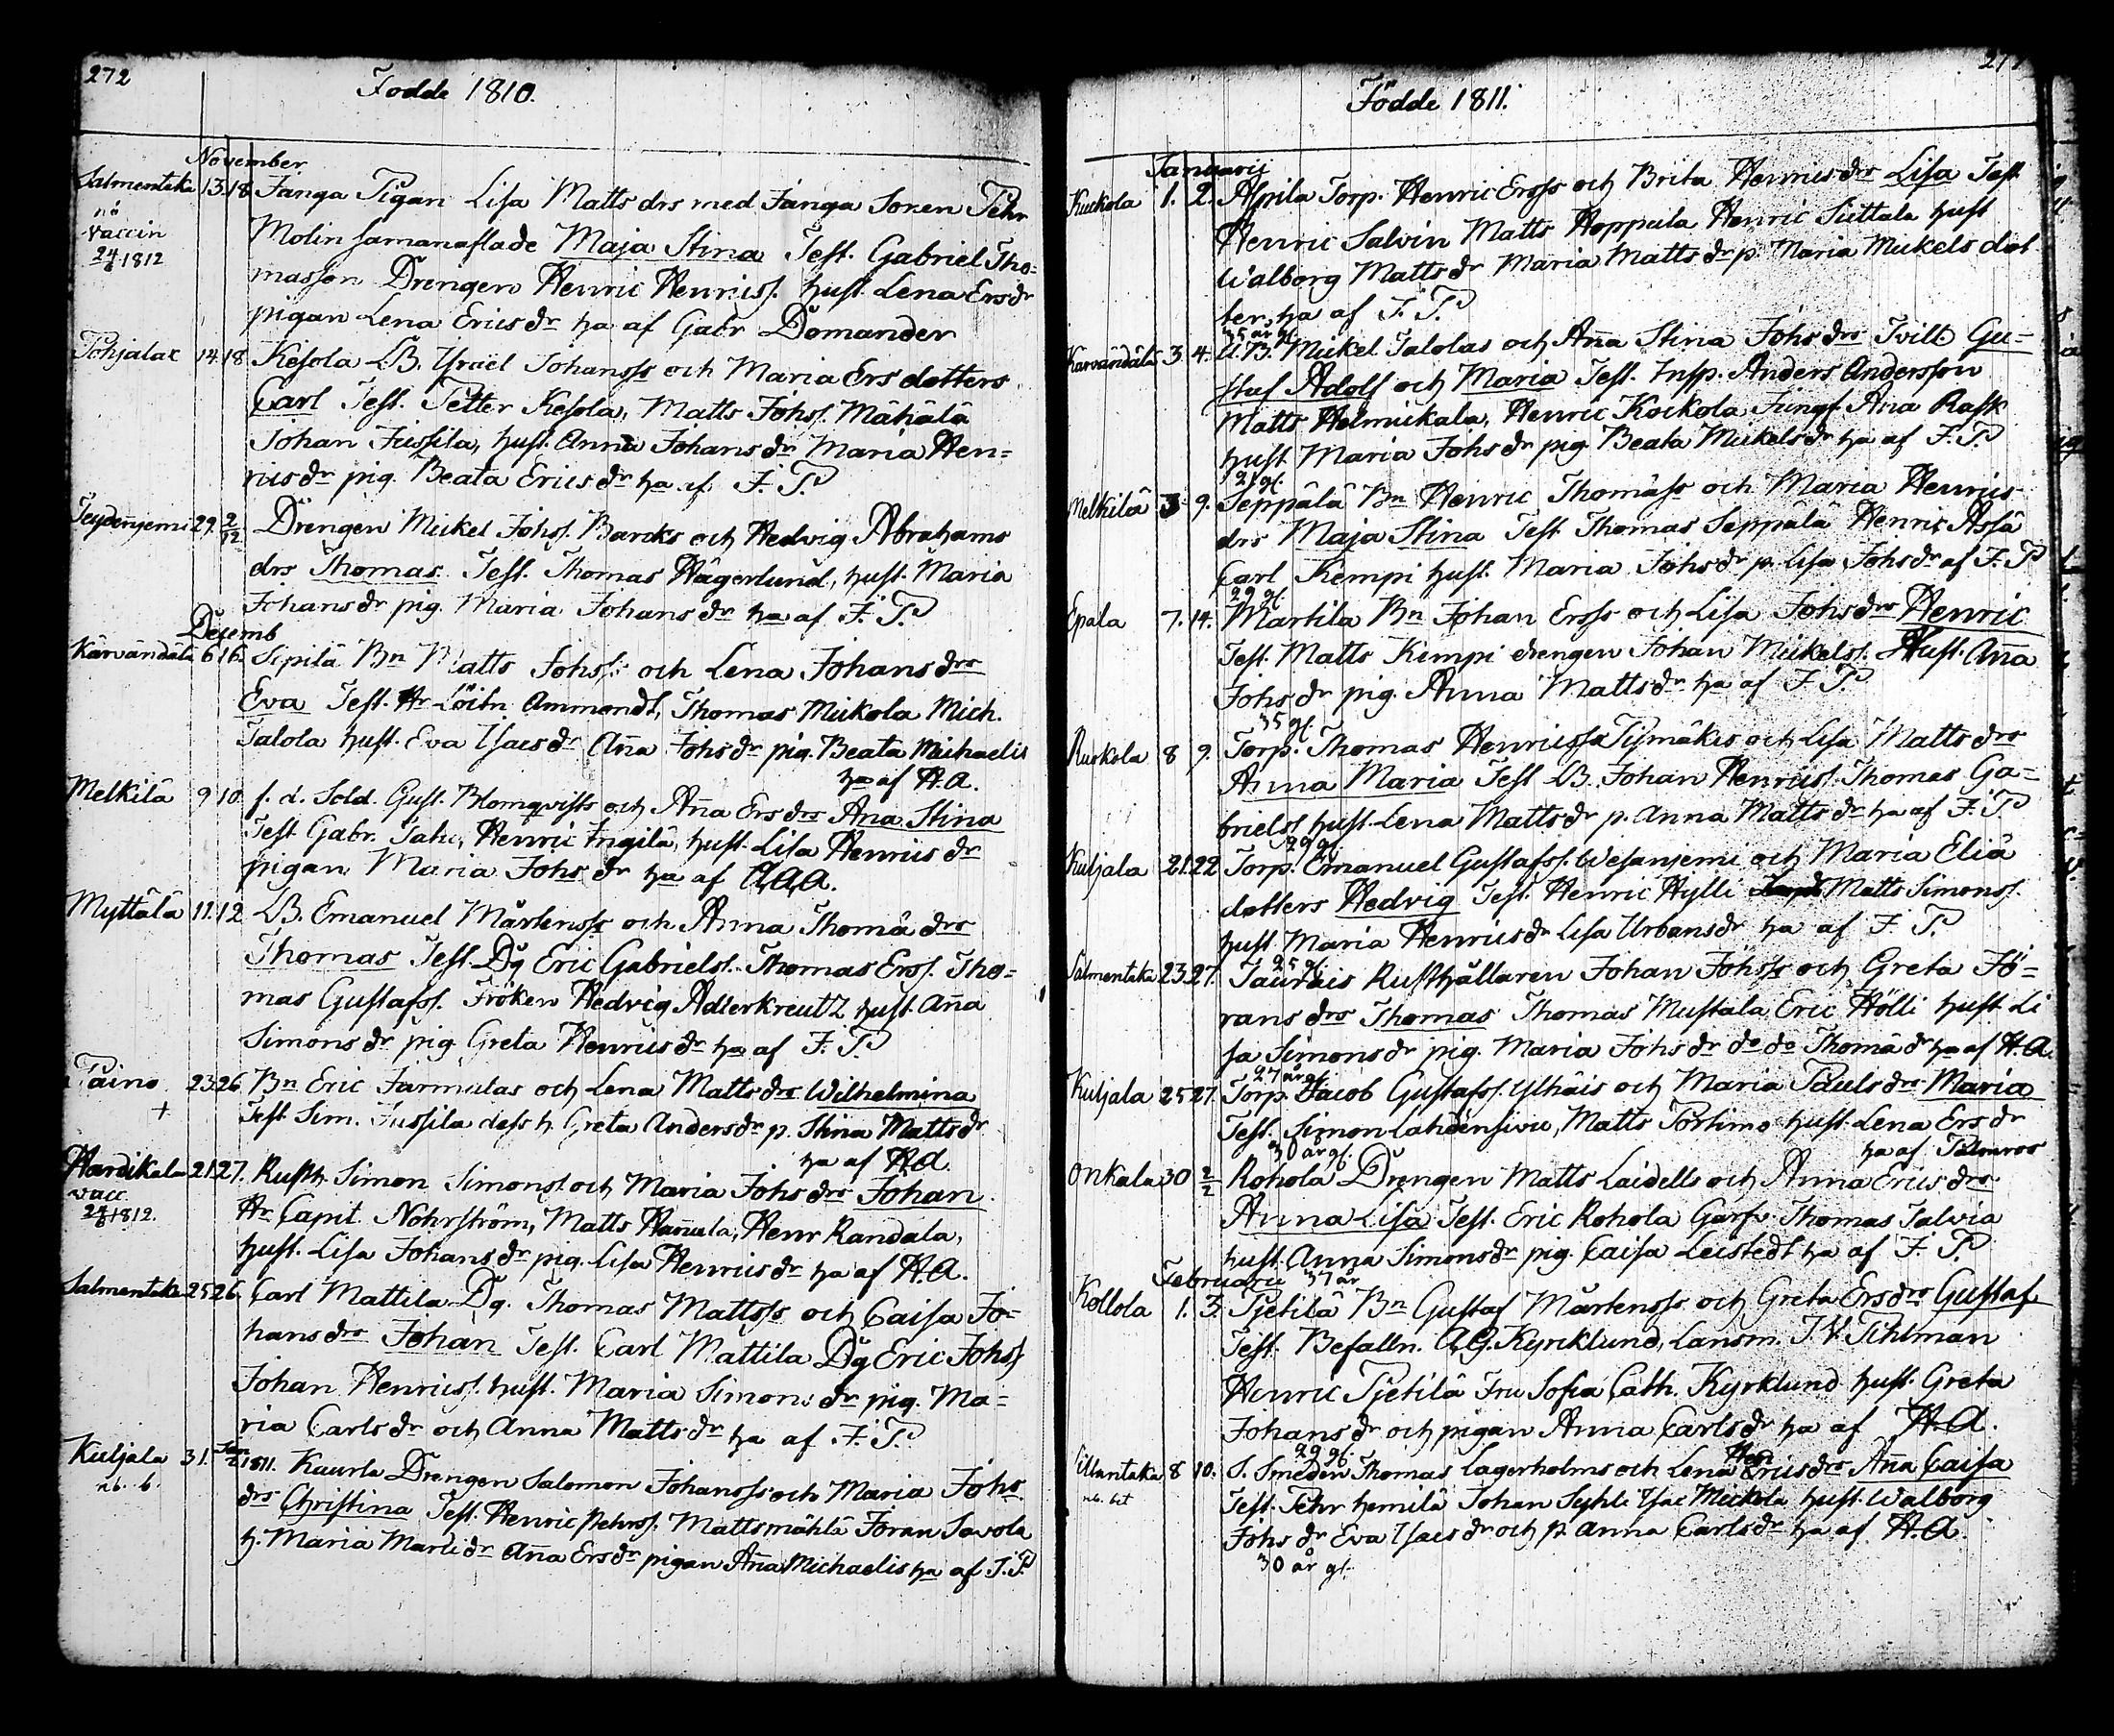 272
Födde 1810.
November
Salmentaka 13. 18 Fånga Pigan Lisa Matts drs med Fånga Sonen Pehr
nö Molin samanaflade Maja Stina Test. Gabriel Tho=
vaccin
24/1812 masson Drengen Henric Henricss. hust. Lena Ersdr
pigan Lena Erics dr ha af Gabr Domander
Pohjalax 14. 18 Kesola LB. Israel Johanss och Maria Ers dotters
Carl Test. Petter Kesola, Matts Johss. Mähälä
Johan Jussila, hust. Anna Johans dr Maria Hen=
rics dr pig. Beata Erics dr ha af J. P.
29. 2/12 Drengen Mickel Johss. Barcks och Hedvig Abrahams
drs Thomas. Test. Thomas Hägerlund, hust. Maria
Johans dr pig. Maria Johans dr ha af J. P.
Decemb
Kärvändälä 6 16. Sipilä Bn Matts Johss. och Lena Johans drs
Eva Test. Hr Löitn Ammondt, Thomas Mickola Mich.
Talola hust. Eva Isacs dr Aña Johs dr pig. Beata Michaelis
ha af H. A.
Melkilä 9 10. f. d. Sold. Gust. Blomqvists och Aña Ers drs Ana Stina
Test Gabr. Henric Ingilä, hust. Lisa Henrics dr
pigan Maria Johs dr ha af A. A. A.
Myttälä 11. 12 LB. Emanuel Mårtenss och Anna Thomä drs
Thomas Test. Dg Eric Gabrielss. Thomas Erss. Tho=
mas Gustafss. Fröken Hedvig Adlerkreutz hust. Aña
Simons dr pig Greta Henrics dr ha af J. P.
Paino 23 26. Bn Eric Jarmulas och Lena Matts drs Wilhelmina
+ Test Sim. Jussila dess h. Greta Anders dr p. Stina Matts dr
ha af H. A.
Hardikala 21 27. Rusth. Simon Simonss. och Maria Johs drs Johan
vacc.
24/1812. Hr Capit. Nohrström, Matts Hañula, Henr Randala,
hust. Lisa Johans dr pig. Lisa Henrics dr ha af H. A.
Salmentaka 25 26. Carl Mattila Dg. Thomas Mattss och Caisa Jo=
hans drs Johan Test. Carl Mattila Dg Eric Johss
Johan Henricss. hust. Maria Simons dr pig. Ma=
ria Carls dr och Anna Matts dr ha af J. P.
Kuljala 31. 1811. Kaurla Drengen Salomon Johanss och Maria Johs
nb. b. drs Christina Test. Henric Pehrss. Matts mählä Joran Savola
h. Maria Marti dr Aña Ers dr pigan Aña Michaelis ha af J. P.
Födde 1811.
Januarij
Kuckola 1. 2. Alpila Torp. Henric Erss och Brita Henrics drs Lisa Test
Henric Salvin Matts Hoppula Henric Suttala hust
Walborg Matts dr Maria Matts dr p. Maria Mickels dot
ter, ha af J. P.
35 år gl.
Kärvändälä 3. 4. U. B. Mickel Talolas och Aña Stina Johs drs Tvill. Gu=
staf Adolf och Maria Test. Insp. Anders Andersson
Matts Holmickala, Henric Kockola Jungf. Ana Rask
hust Maria Johs dr pig Beata Mickels dr ha af J. P.
21 gl.
Melkilä 3. 9. Seppälä Bn Henric Thomäss och Maria Henrics
drs Maja Stina Test Thomas Seppälä Henric Assä
Carl Kempi hust. Maria Johs dr p. Lisa Johs dr af J. P
29 gl.
Epala 7. 14. Martila Bn Johan Erss och Lisa Johs drs Henric
Test. Matts Kempi drengen Johan Mickelss. Hust. Aña
Johs dr pig. Anna Matts dr ha af J. P.
35 gl.
Ruokola 8 9. Torp. Thomas Henricss Tismäkis och Lisa Matts drs
Anna Maria Test LB. Johan Henricss. Thomas Ga=
brielss hust. Lena Matts dr p. Anna Matts dr ha af J. P.
29 gl.
Kuljala 21. 22 Torp. Emanuel Gustafss. Wesanjemi och Maria Eliä
dotters Hedvig Test. Henric Hylli Matts Simonss.
hust Maria Henrics dr Lisa Urbans dr ha af J. P.
25 gl.
Salmentaka 23. 27. Taurais Rusthållaren Johan Johss och Greta Jö=
rans drs Thomas Thomas Mustala Eric Hölli hust. Li
sa Simons dr pig. Maria Johs dr do do Thomä dr ha af H. A.
27 år gl.
Kuljala 25 27. Torp. Jacob Gustafss. Ylhäis och Maria Pauls drs Maria
Test. Simon Lahdensivu, Matts Portimo hust. Lena Ers dr
30 år gl. ha af Palmroos
Onkala 30 2/2 Rohola Drengen Matts Laidells och Anna Erics drs
Anna Lisa Test. Eric Rohola Garfv. Thomas Talvia
hust. Anna Simons dr pig. Caisa Leistedt ha af J. P.
Februarii 37 år
Kollola 1. 3. Pjetilä Bn Gustaf Mårtenss och Greta Ers drs Gustaf
Test. Befalln. A. G. Kyrcklund, Lansm. J. V. Pihlman
Henric Pjetilä Fru Sofia Cath. Kyrklund hust. Greta
Johans dr och pigan Anna Carls dr ha af H. A.
29 gl.
8 10. S. Smeden Thomas Lagerholms och Lena Henrics drs Aña Caisa
nb. bet Test. Pehr hemilä Johan Syhli Isac Mickola hust. Walborg
Johs dr Eva Isacs dr och p. Anna Carls dr ha af H. A.
30 år gl.